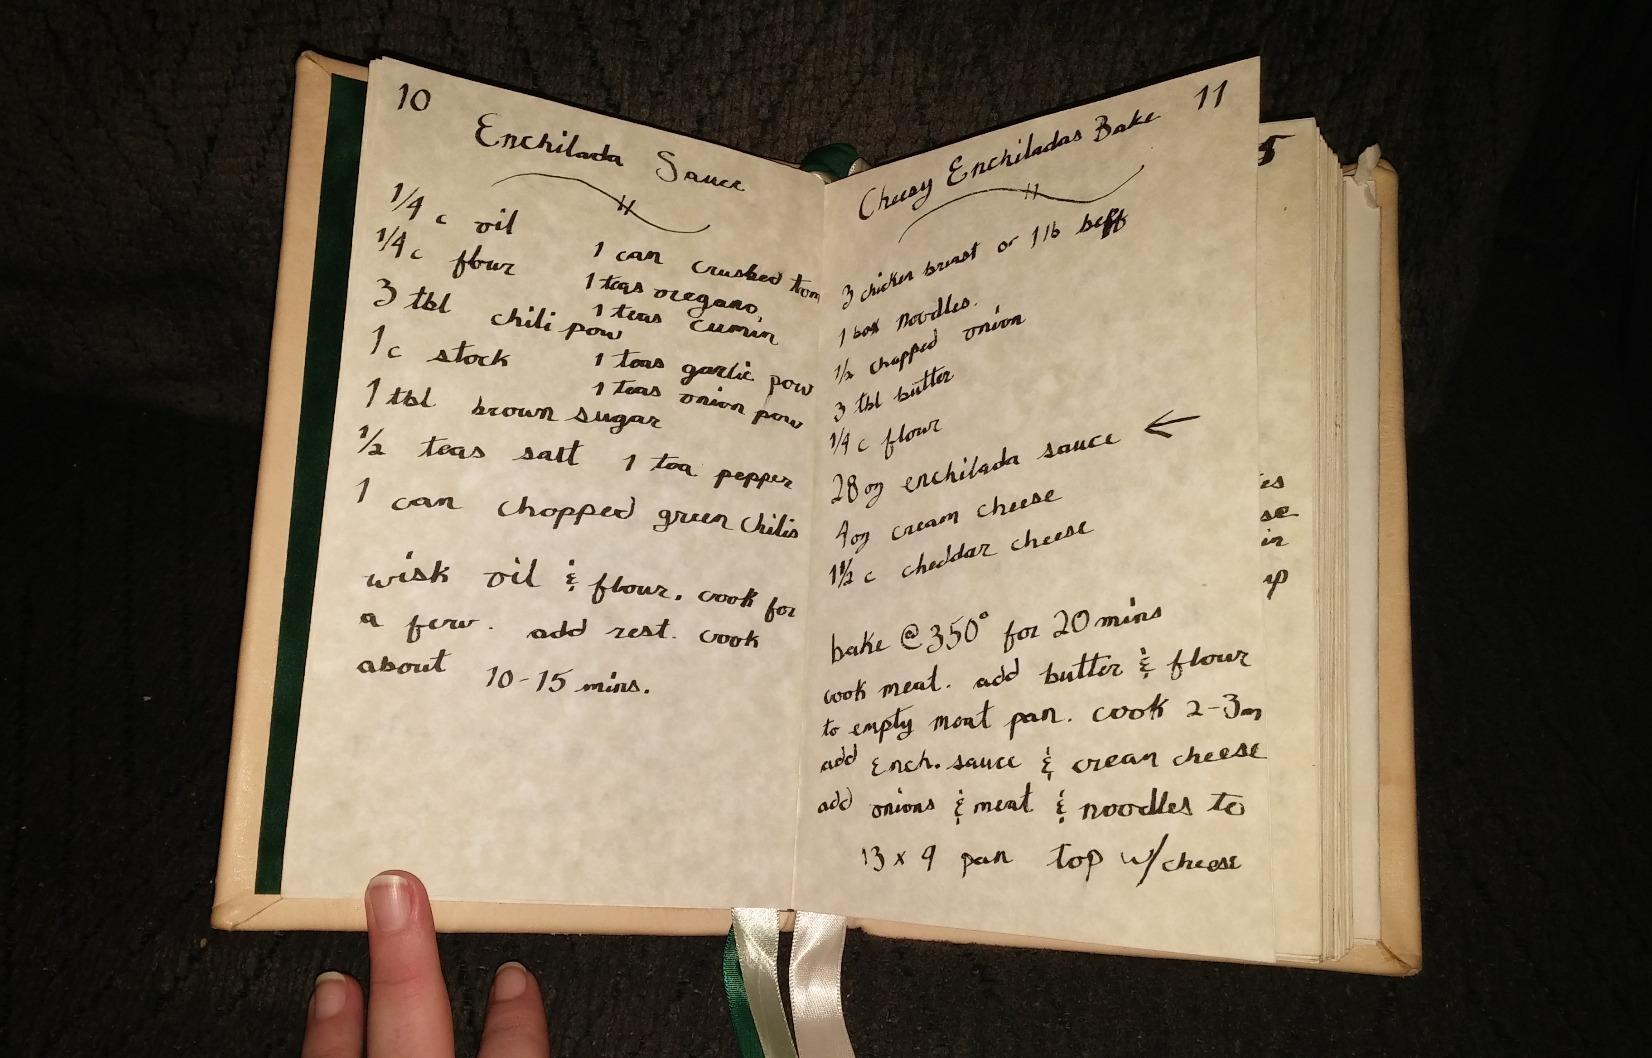 10
Enchilada Sauce
1/4 c oil
1/4 c flour
3 tbl chili pow
1 c stock
1 tbl brown sugar
1 can crushed tom
1 teas oregano
1 teas cumin
1 teas garlic pow
1 teas onion pow
1/2 teas salt 1 tea pepper
1 can chopped green chilis
wisk oil & flour. cook for
a few. add rest. cook
about 10-15 mins.
11
Cheesy Enchiladas Bake
3 chicken breast or 1 lb beff
1 box noodles.
1/2 chopped onion
3 tbl butter
1/4 c flour
28oz enchilada sauce ←
4oz cream cheese
1 1/2 c cheddar cheese
bake @ 350° for 20 mins
cook meat. add butter & flour
to empty meat pan. cook 2-3m
add Ench. sauce & cream cheese
add onions & meat & noodles to
13 x 9 pan top w/cheese
5
es
se
in
up